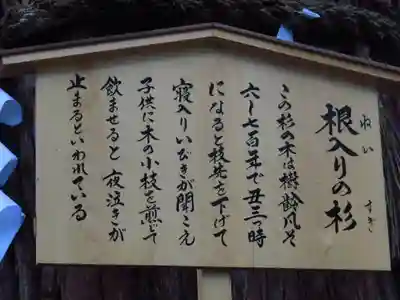 根入りの杉
ねい　　すぎ
この杉の木は樹齢凡そ
六〜七百年で丑三つ時
になると枝先を下げて
寝入りいびきが聞こえ
子供に木の小枝を煎じて
飲ませると夜泣きが
止まるといわれている